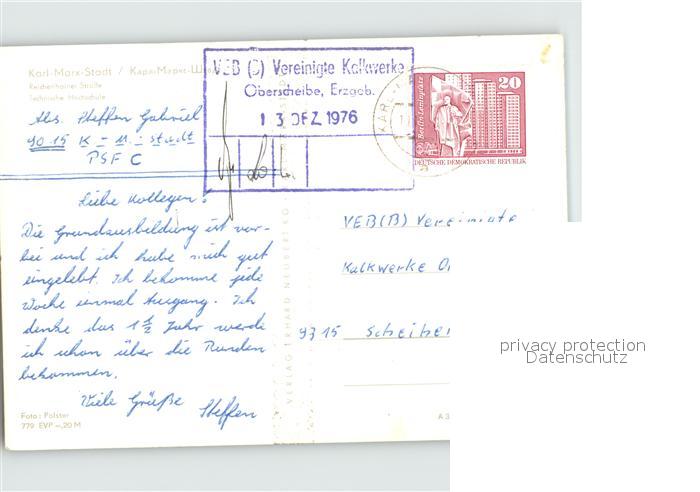 Karl-Marx-Stadt / Карл-Маркс-Ш
Reichenhainer Straße
Technische Hochschule
Abs. Steffen Gabriel
9015 K - M. - Stadt
PSF C
VEB (B) Vereinigte Kalkwerke
Oberscheibe, Erzgeb.
1 3. DEZ. 1976
KARL-
20
Berlin-Leninplatz
DEUTSCHE DEMOKRATISCHE REPUBLIK
Liebe Kollegen!
Die Grundausbildung ist vor-
bei und ich habe mich gut
eingelebt. Ich bekomme jede
Woche einmal Ausgang. Ich
denke das 1 1/2 Jahr werde
ich schon über die Runden
bekommen.
Viele Grüße
Steffen
VERLAG ERHARD NEUBERT KG
VEB(B) Vereinigte
Kalkwerke O
9315 Scheibe
Foto: Polster
779 EVP -,20 M
A 3
privacy protection
Datenschutz